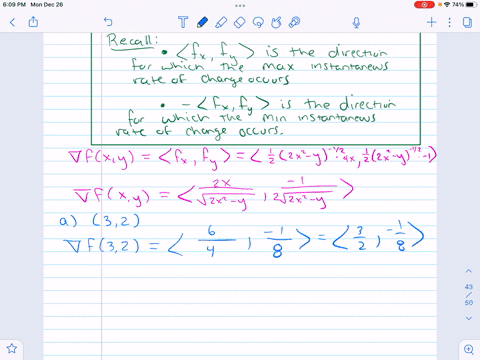 6:09 PM Mon Dec 26
74%
Recall:
• <fx, fy> is the direction
for which the max instantaneous
rate of change occurs
• - <fx, fy> is the direction
for which the min instantaneous
rate of change occurs.
∇f(x,y) = <fx, fy> = <½(2x²-y)^-1/2 · 4x, ½(2x²-y)^-1/2 · -1>
∇f(x,y) = <2x/√(2x²-y), -1/2√(2x²-y)>
a) (3,2)
∇f(3,2) = <6/4, -1/8> = <3/2, -1/8>
43
/
50